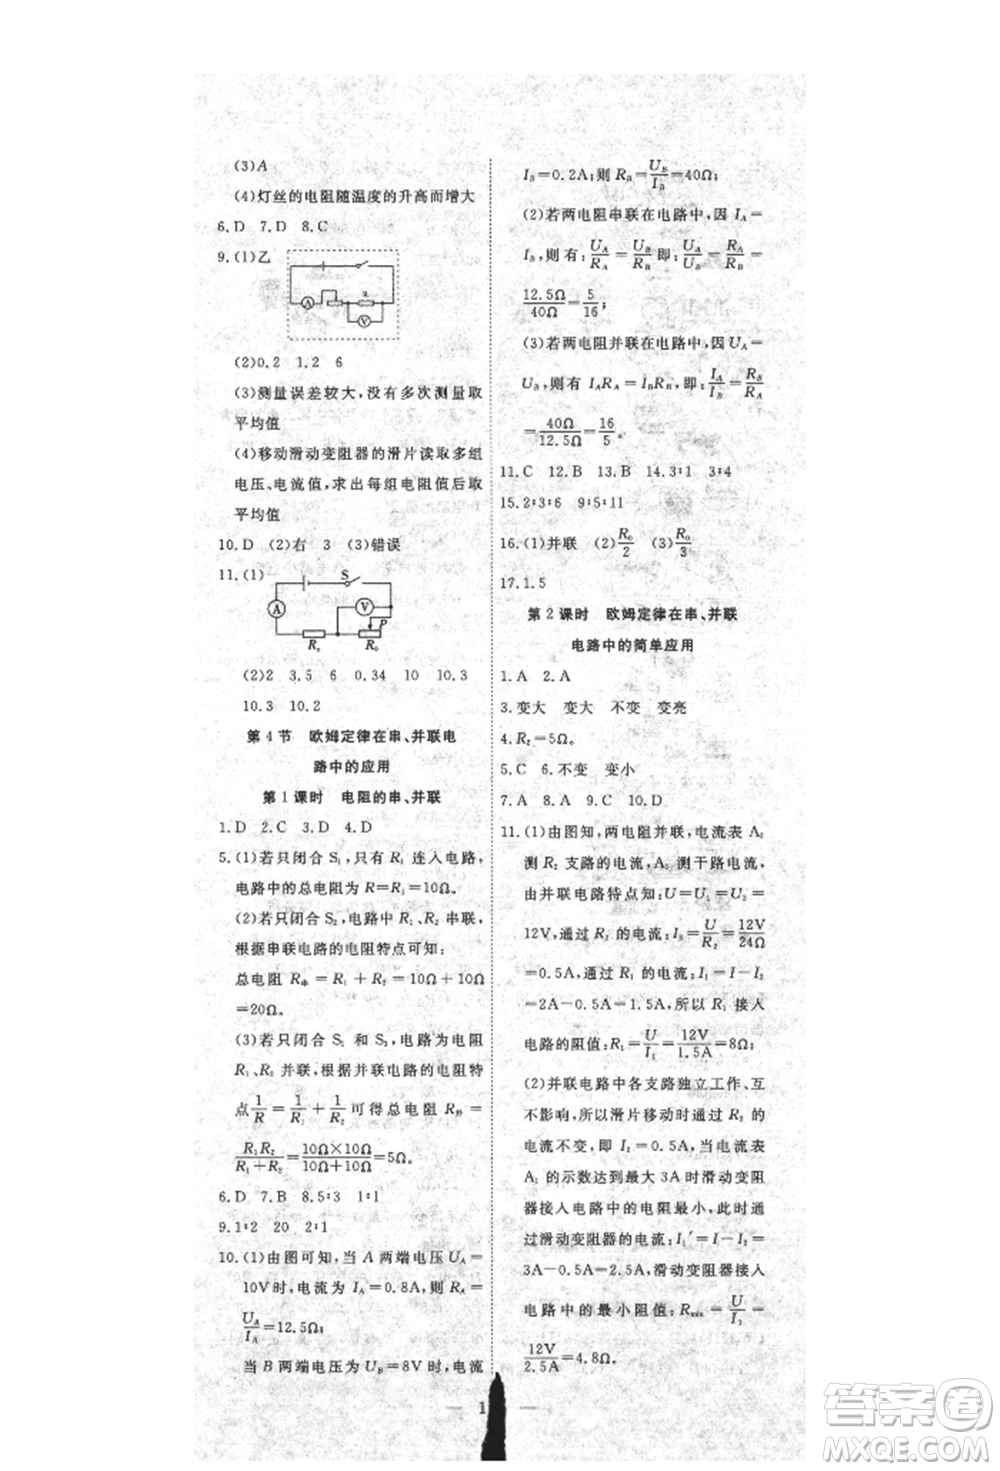 (3)A
(4)灯丝的电阻随温度的升高而增大
6.D 7.D 8.C
9.(1)乙
A
V
(2)0.2 1.2 6
(3)测量误差较大,没有多次测量取
平均值
(4)移动滑动变阻器的滑片读取多组
电压、电流值,求出每组电阻值后取
平均值
10.D (2)右 3 (3)错误
11.(1)
S
A
V
P
R₀
(2)2 3.5 6 0.34 10 10.3
10.3 10.2
第4节 欧姆定律在串、并联电
路中的应用
第1课时 电阻的串、并联
1.D 2.C 3.D 4.D
5.(1)若只闭合 S₁,只有 R₁ 连入电路,
电路中的总电阻为 R=R₁=10Ω。
(2)若只闭合 S₂,电路中 R₁、R₂ 串联,
根据串联电路的电阻特点可知:
总电阻 R串=R₁+R₂=10Ω+10Ω
=20Ω。
(3)若只闭合 S₁ 和 S₃,电路中电阻
R₁、R₂ 并联,根据并联电路的电阻特
点 1/R = 1/R₁ + 1/R₂ 可得总电阻 R并=
R₁R₂/(R₁+R₂) = (10Ω×10Ω)/(10Ω+10Ω) =5Ω。
6.D 7.B 8.5∶3 1∶1
9.1∶2 20 2∶1
10.(1)由图可知,当 A 两端电压 U_A=
10V时,电流为 I_A=0.8A,则 R_A=
U_A/I_A=12.5Ω;
当 B 两端电压为 U_B=8V 时,电流
I_B=0.2A;则 R_B=U_B/I_B=40Ω;
(2)若两电阻串联在电路中,因 I_A=
I_B,则有:U_A/R_A=U_B/R_B 即:U_A/U_B=R_A/R_B=
12.5Ω/40Ω=5/16;
(3)若两电阻并联在电路中,因 U_A=
U_B,则有 I_AR_A=I_BR_B,即:I_A/I_B=R_B/R_A
=40Ω/12.5Ω=16/5。
11.C 12.B 13.B 14.3∶1 3∶4
15.2∶3∶6 9∶5∶11
16.(1)并联 (2)R₀/2 (3)R₀/3
17.1.5
第2课时 欧姆定律在串、并联
电路中的简单应用
1.A 2.A
3.变大 变大 不变 变亮
4.R₂=5Ω。
5.C 6.不变 变小
7.A 8.A 9.C 10.D
11.(1)由图知,两电阻并联,电流表 A₂
测 R₂ 支路的电流,A₁ 测干路电流,
由并联电路特点知:U=U₁=U₂=
12V,通过 R₂ 的电流:I₂=U/R₂=12V/24Ω
=0.5A,通过 R₁ 的电流:I₁=I-I₂
=2A-0.5A=1.5A,所以 R₁ 接入
电路的阻值:R₁=U/I₁=12V/1.5A=8Ω;
(2)并联电路中各支路独立工作、互
不影响,所以滑片移动时通过 R₂ 的
电流不变,即 I₂=0.5A,当电流表
A₁ 的示数达到最大 3A 时滑动变阻
器接入电路中的电阻最小,此时通
过滑动变阻器的电流:I₁′=I-I₂=
3A-0.5A=2.5A,滑动变阻器接入
电路中的最小阻值:Rmin=U/I₁′=
12V/2.5A=4.8Ω。
1
答案圈
MXQE.COM